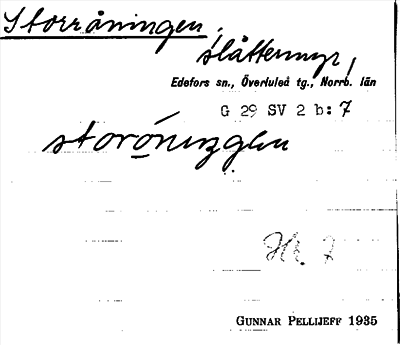 Storråningen,
slåttermyr,
Edefors sn., Överluleå tg., Norrb. län
G 29 SV 2 b: 7
Hr. 7
GUNNAR PELLIJEFF 1935